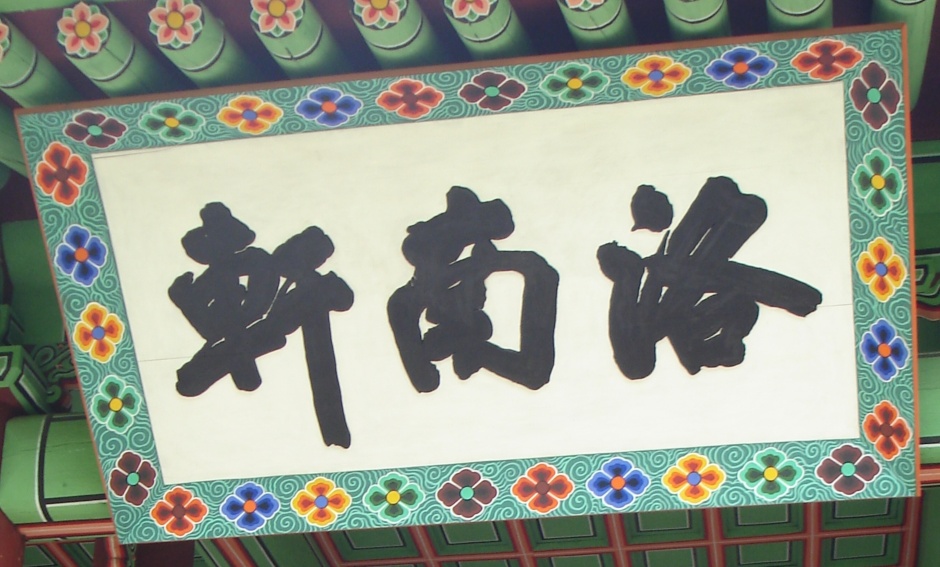 洛南軒